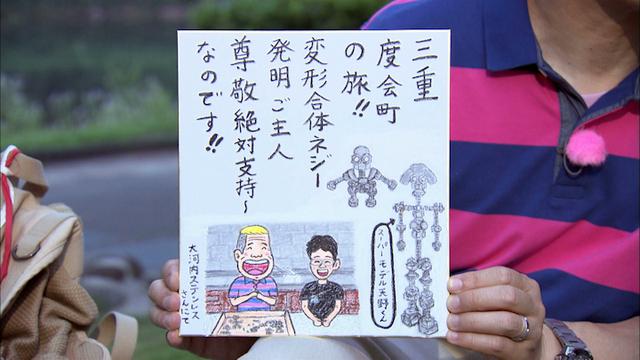 三重
度会町
の旅!!
変形合体ネジー
発明ご主人
尊敬絶対支持〜
なのです!!
スーパーモデル天野くん
大河内ステンレス
さんにて